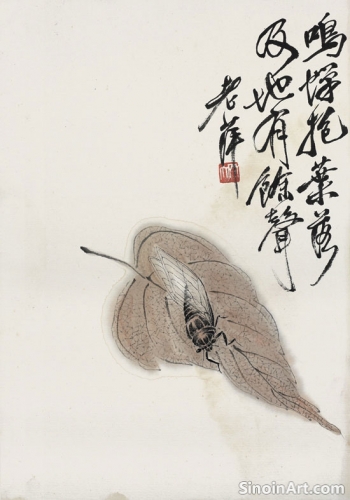 鳴蟬抱葉落
及地有餘聲
老萍
SinoinArt.com